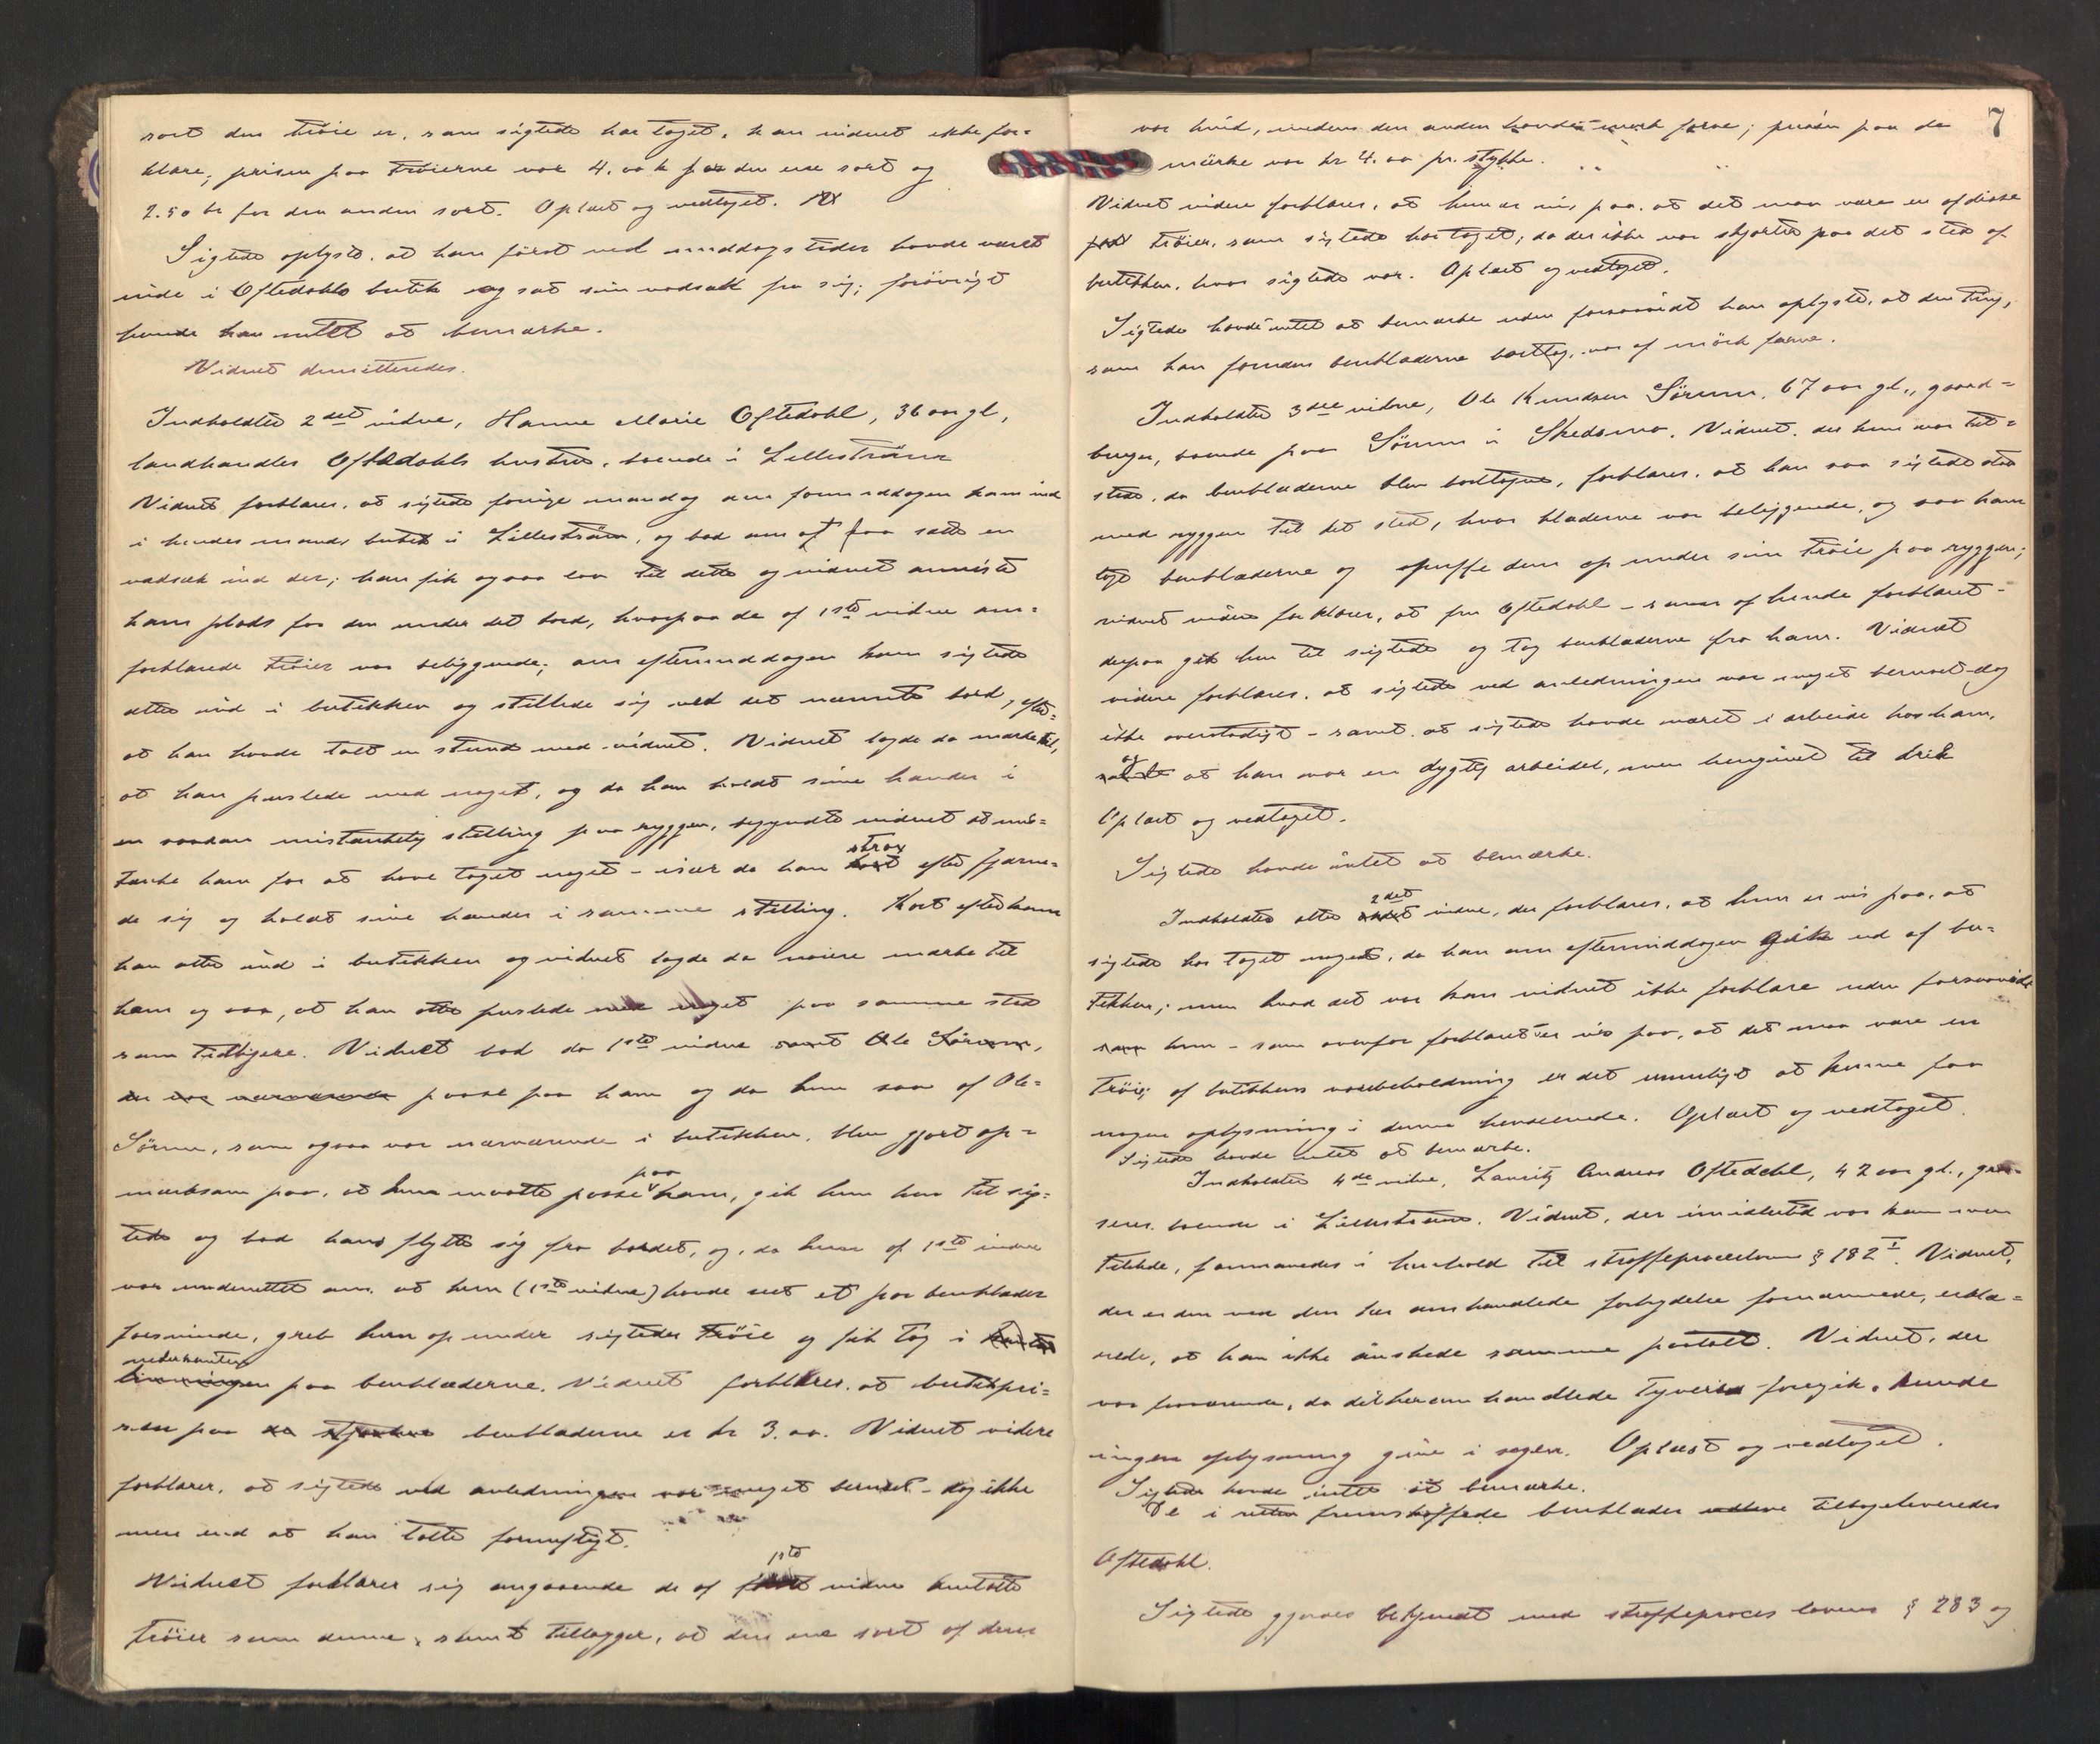 sort den trøie er, som sigtede har taget, kan vidnet ikke for=
klare; prisen paa trøierne var 4.00 k for den ene sort og
2.50 kr for den anden sort. Oplæst og vedtaget.
Sigtede oplyste, at han først ved middagstider havde været
inde i Oftedahls butik og sat sin vadsæk fra sig; forøvrigt
havde han intet at bemærke.
Vidnet demitteredes.
Indkaldtes 2det vidne, Hanne Marie Oftedahl, 36 aar gl,
landhandler Oftedahls hustru, boende i Lillestrøm
Vidnet forklarer, at sigtede forrige mandag om formiddagen kom ind
i hendes mands butik i Lillestrøm, og bad om at faa sætte en
vadsæk ind der; han fik ogsaa lov til dette og vidnet anviste
ham plads for den under det bord, hvorpaa de af 1ste vidne om=
forklarede trøier var beliggende; om eftermiddagen kom sigtede
atter ind i butikken og stillede sig ved det nævnte bord, efter=
at han havde talt en stund med vidnet. Vidnet lagde da mærke til,
at han puslede med noget, og da han holdt sine hænder i
en saadan mistænkelig stilling paa ryggen, begyndte vidnet at mis=
tænke ham for at have taget noget – især da han strax efter fjerne=
de sig og holdt sine hænder i samme stilling. Kort efter kom
han atter ind i butikken og vidnet lagde da nøiere mærke til
ham og saa, at han atter puslede med noget paa samme sted
som tidligere. Vidnet bad da 1ste vidne samt Ole Sørum,
der var nærværende passe paa ham og da hun saa af Ole
Sørum, som ogsaa var nærværende i butikken, blev gjort op=
mærksom paa, at hun maatte passe paa ham, gik hun hen til sig=
tede og bad ham flytte sig fra bordet, og, da hun af 1ste vidne
var underrettet om, at hun (1ste vidne) havde seet et par benklæder
forsvinde, greb hun op under sigtedes trøie og fik tag i
nederkanten
linningen paa benklæderne. Vidnet forklarer, at butikpri=
sen paa de benklæderne er kr 3.00. Vidnet videre
forklarer, at sigtede ved anledningen var meget beruset – dog ikke
mere end at han talte fornuftigt.
Vidnet forklarer sig angaaende de af 1ste vidne omtalte
trøier som denne, samt tillægger, at den ene sort af dem
7
var hvid, medens den anden havde mørk farve; prisen paa de
mørke var kr 4.00 pr. stykke.
Vidnet videre forklarer, at hun er vis paa, at det maa være en af disse
trøier, som sigtede har taget; da der ikke var skjorter paa det sted af
butikken, hvor sigtede var. Oplæst og vedtaget.
Sigtede havde intet at bemærke uden forsaavidt han oplyste, at den ting,
som han foruden benklæderne borttog, var af mørk farve.
Indkaldtes 3die vidne, Ole Knudsen Sørum, 67 aar gl., gaard=
bruger, boende paa Sørum i Skedsmo. Vidnet, der kun var til=
stede, da benklæderne blev borttagne, forklarer, at han saa sigtede staa
med ryggen til det sted, hvor klæderne var beliggende, og saa ham
tage benklæderne og stuffe dem op under sin trøie paa ryggen;
vidnet videre forklarer, at fru Oftedahl – som af hende forklaret –
derpaa gik hen til sigtede og tog benklæderne fra ham. Vidnet
videre forklarer, at sigtede ved anledningen var meget beruset – dog
ikke overstadigt – samt, at sigtede havde været i arbeide hos ham,
og at han var en dygtig arbeider, men hengiven til drik
Oplæst og vedtaget.
Sigtede havde intet at bemærke.
Indkaldtes atter 2det vidne, der forklarer, at hun er vis paa, at
sigtede har taget noget, da han om eftermiddagen gik ud af bu=
tikken; men hvad det var kan vidnet ikke forklare uden forsaavidt
som hun – som ovenfor forklaret – er vis paa, at det maa være en
trøie; af butikkens varebeholdning er det umuligt at kunne faa
nogen oplysning i denne henseende. Oplæst og vedtaget.
Sigtede havde intet at bemærke.
Indkaldtes 4de vidne, Lauritz Andreas Oftedahl, 42 aar gl.,
boende i Lillestrøm. Vidnet, der imidlertid var kommen
tilstede, formanedes i henhold til straffeprocesloven § 182 1. Vidnet,
der er den ved den her omhandlede forbrydelse fornærmede, erklæ=
rede, at han ikke ønskede samme paatalt. Vidnet, der
var fraværende, da det her omhandlede tyveri foregik, kunde
ingen oplysning give i sagen. Oplæst og vedtaget.
Sigtede havde intet at bemærke.
De i retten fremskaffede benklæder tilbageleveredes
Oftedahl.
Sigtede gjordes bekjendt med straffeproces lovens § 283 og